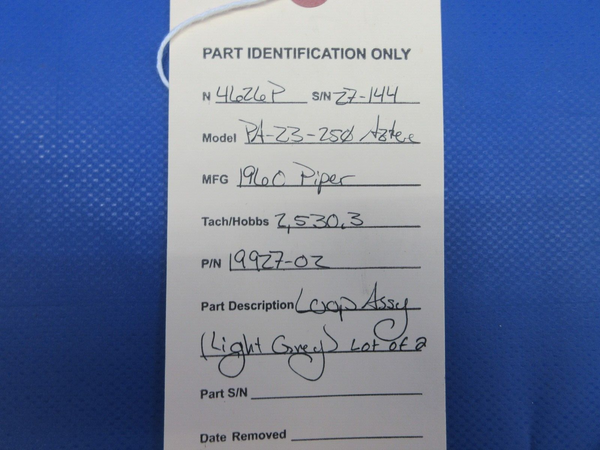 PART IDENTIFICATION ONLY
N 4626P S/N 27-144
Model PA-23-250 Aztec
MFG 1960 Piper
Tach/Hobbs 2,530.3
P/N 19927-02
Part Description Loop Assy
(Light Grey) Lot of 2
Part S/N
Date Removed